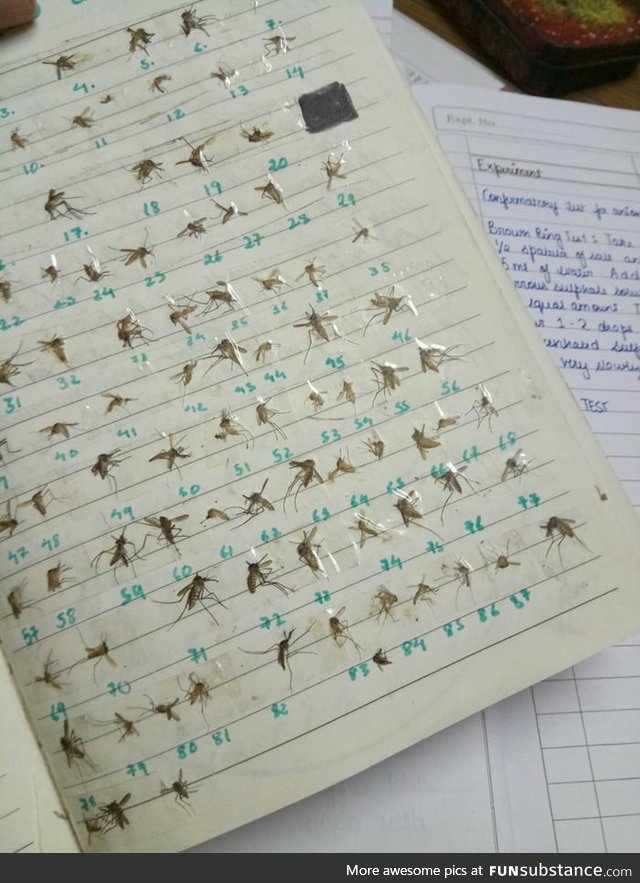 3. 4. 5. 6. 7.
10. 11 12 13 14
17. 18 19 20
22 23 24 25 26 27 28 29
31 32 33 34 35 36 37 35
40 41 42 43 44 45 46
47 48 49 50 51 52 53 54 55 56
57 58 59 60 61 62 63 64 65 66 67 68
69 70 71 72 73 74 75 76 77
78 79 80 81 82 83 84 85 86 87
Expt. No.
Experiment
Confirmatory test for
Brown Ring Test : Take
1/2 spatula of salt
5 ml of water. Add
sulphate
equal amount.
1-2 drops
very slowly
TEST
More awesome pics at FUNsubstance.com